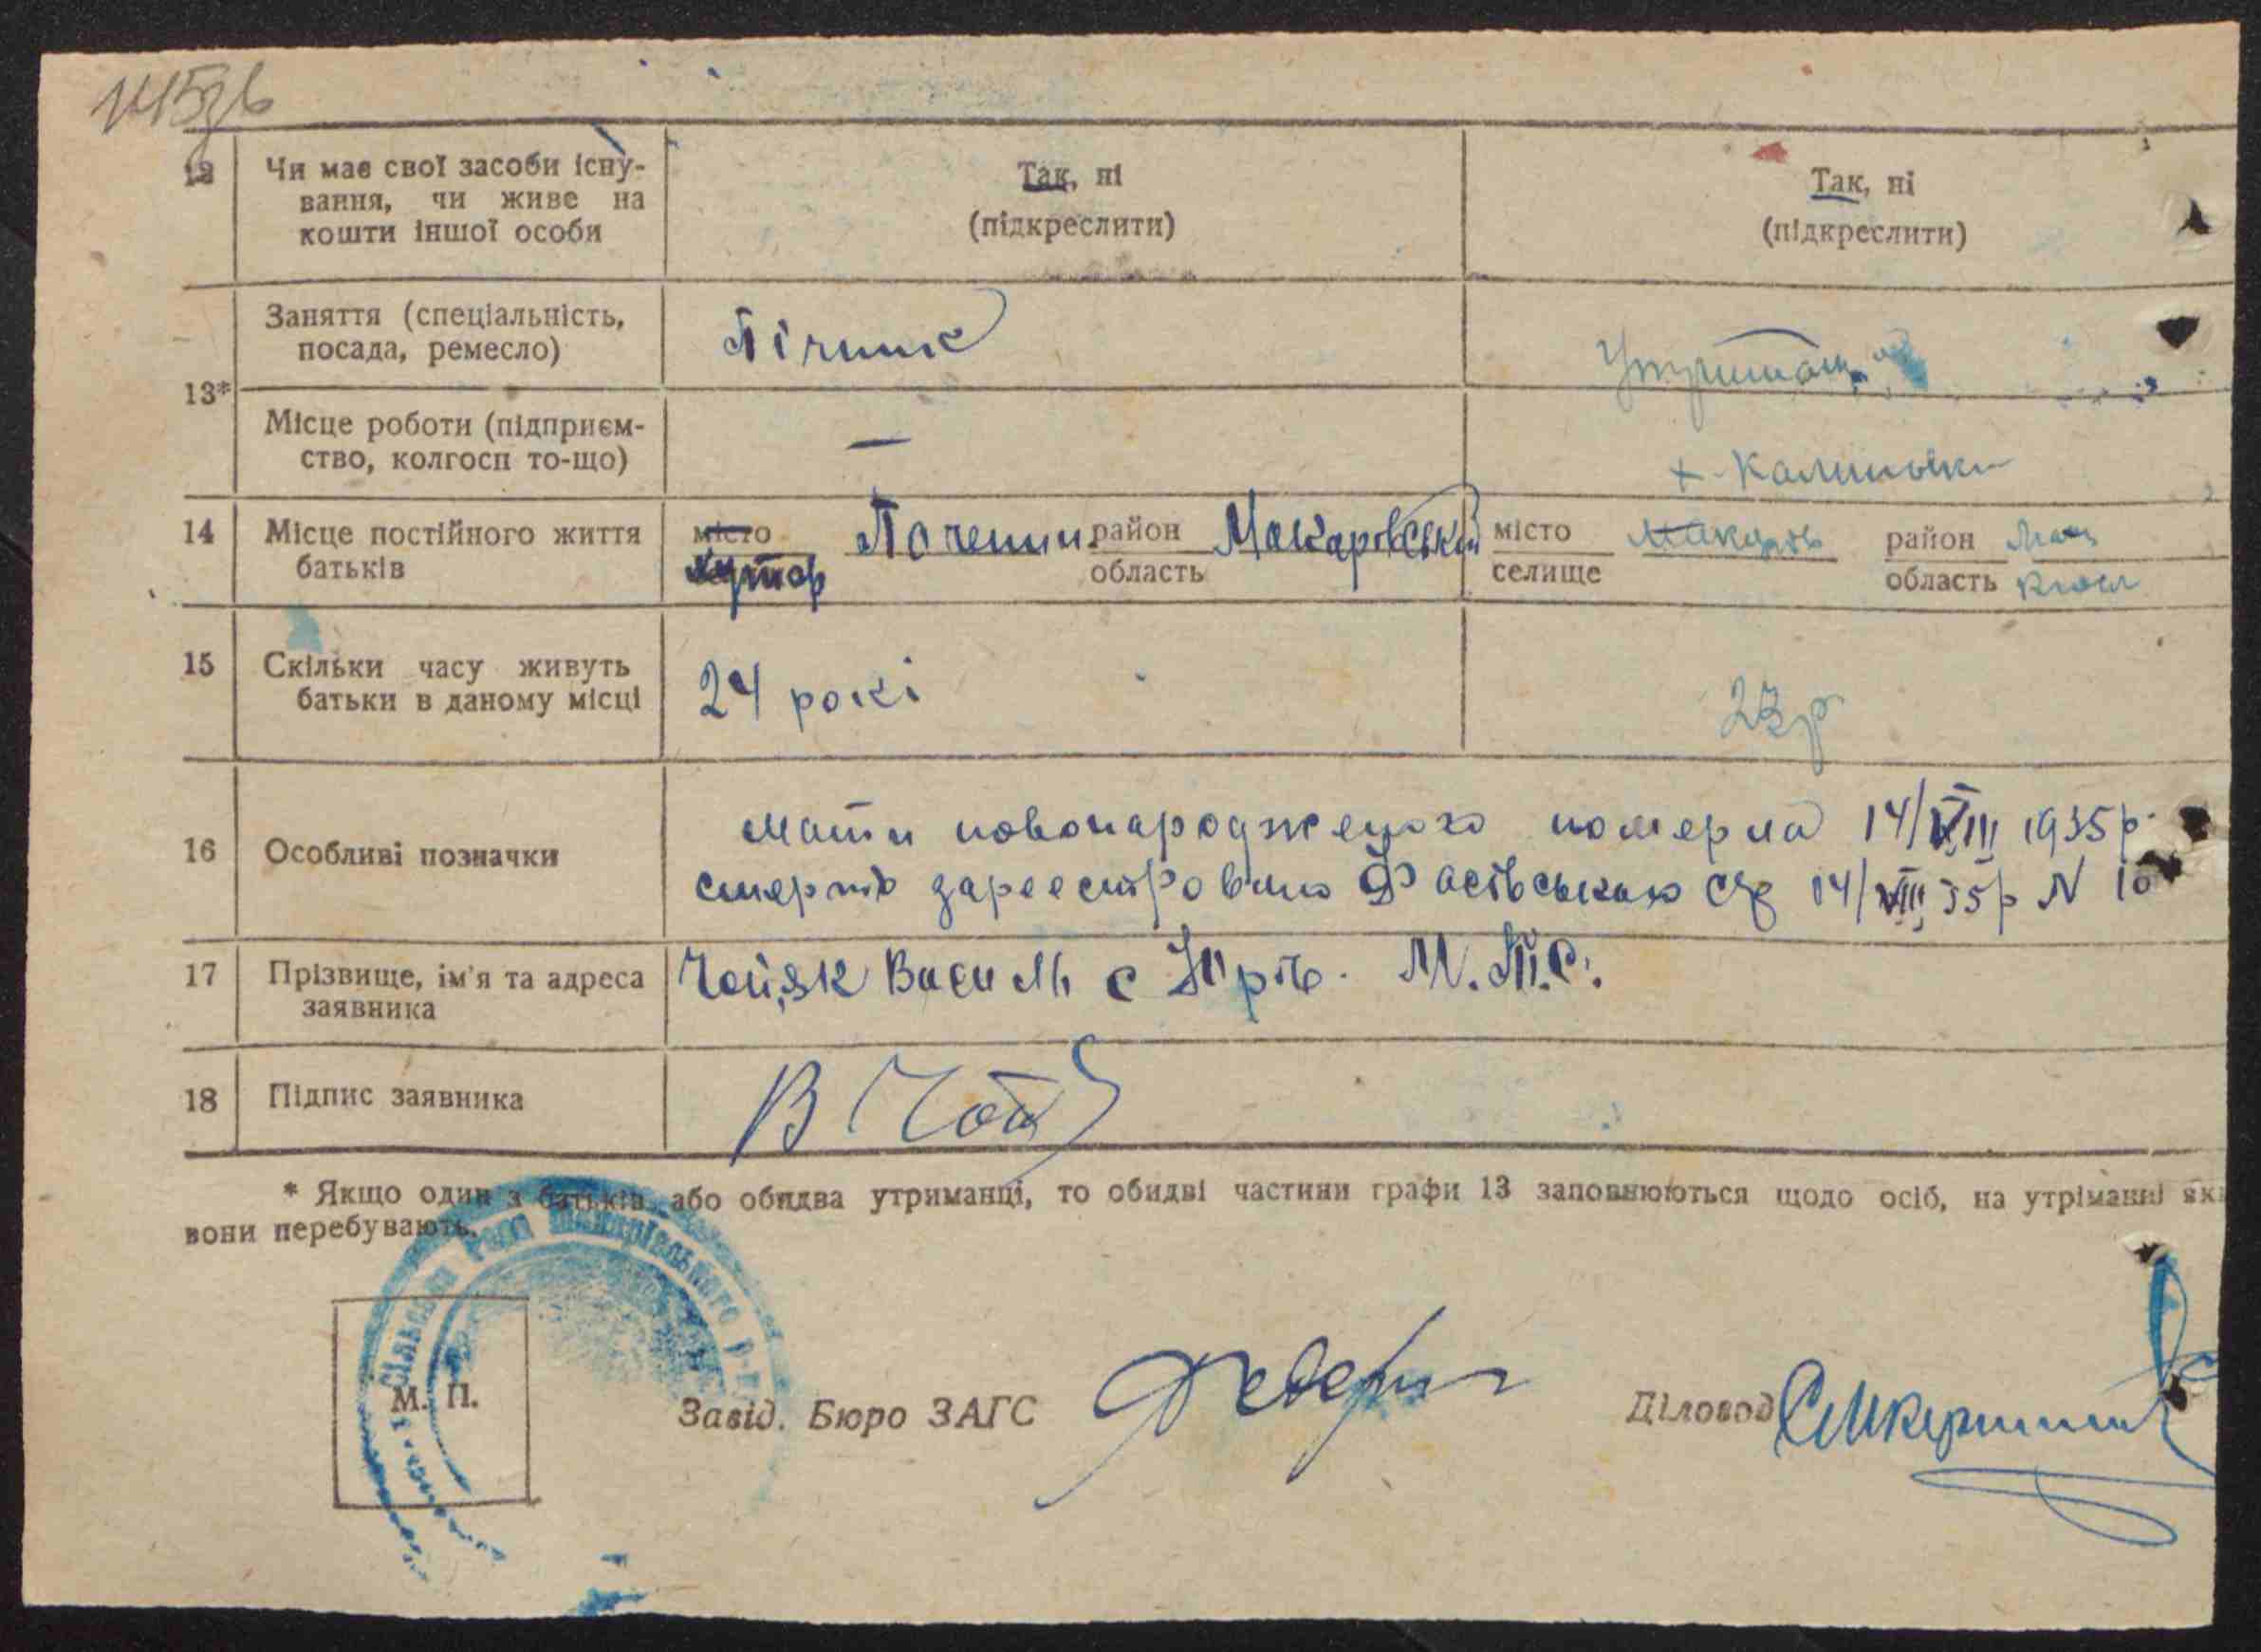 12 Чи має свої засоби існу-
вання, чи живе на
кошти іншої особи
Так, ні
(підкреслити)
Так, ні
(підкреслити)
13*
Заняття (спеціальність,
посада, ремесло)
Пічник
Місце роботи (підприєм-
ство, колгосп то-що)
—
х. Калинівка
14 Місце постійного життя
батьків
місто
хутор
район Макарівський
область
місто
селище
район Мак
область Київ
15 Скільки часу живуть
батьки в даному місці
24 рокі
16 Особливі позначки
Мати новонародженого померла 14/VIII 1935 р.
смерть зареестровано Фасівською с/р 14/VIII 35 р N 10
17 Прізвище, ім'я та адреса
заявника
Василь с Юрів. М.Т.С.
18 Підпис заявника
* Якщо один з батьків або обидва утриманці, то обидві частини графи 13 заповнюються щодо осіб, на утріманні як
вони перебувають.
М. П.
Завід. Бюро ЗАГС
Діловод